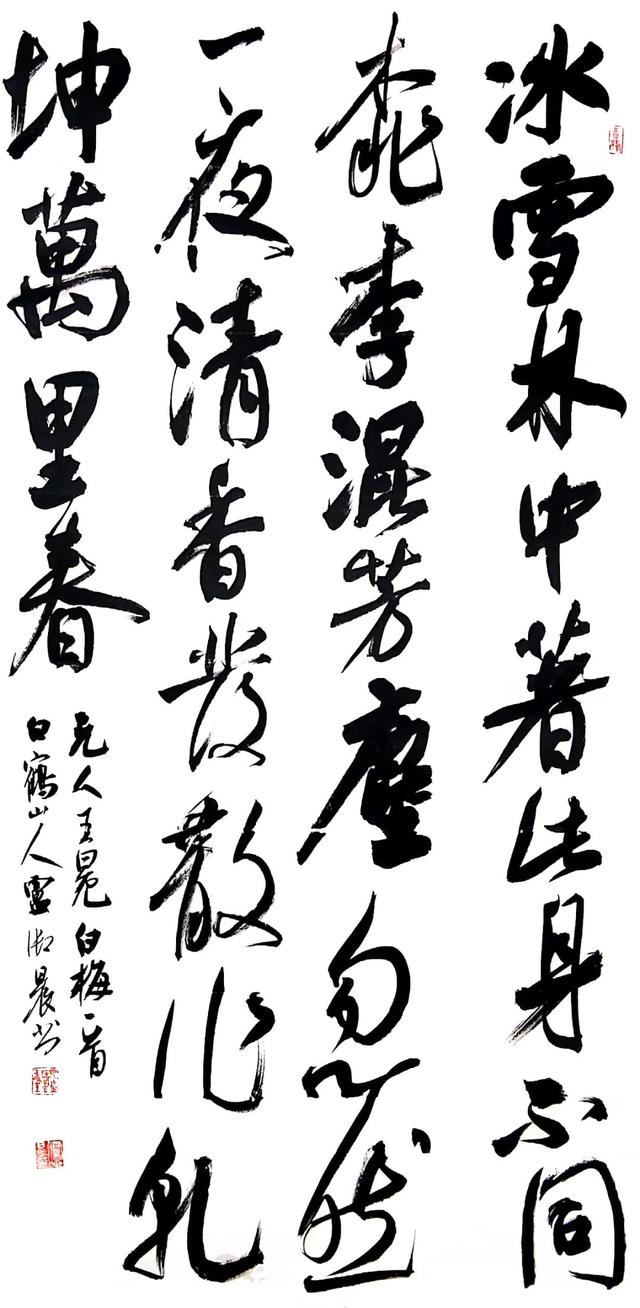 冰雪林中著此身不同
桃李混芳塵忽然
一夜清香發散作乾
坤萬里春
元人王冕白梅一首
白鶴山人晨书